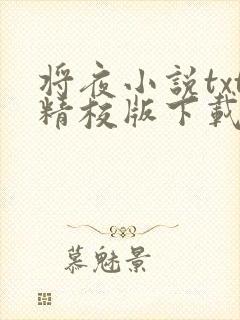 将夜小説txt
精校版下載
慕魅景